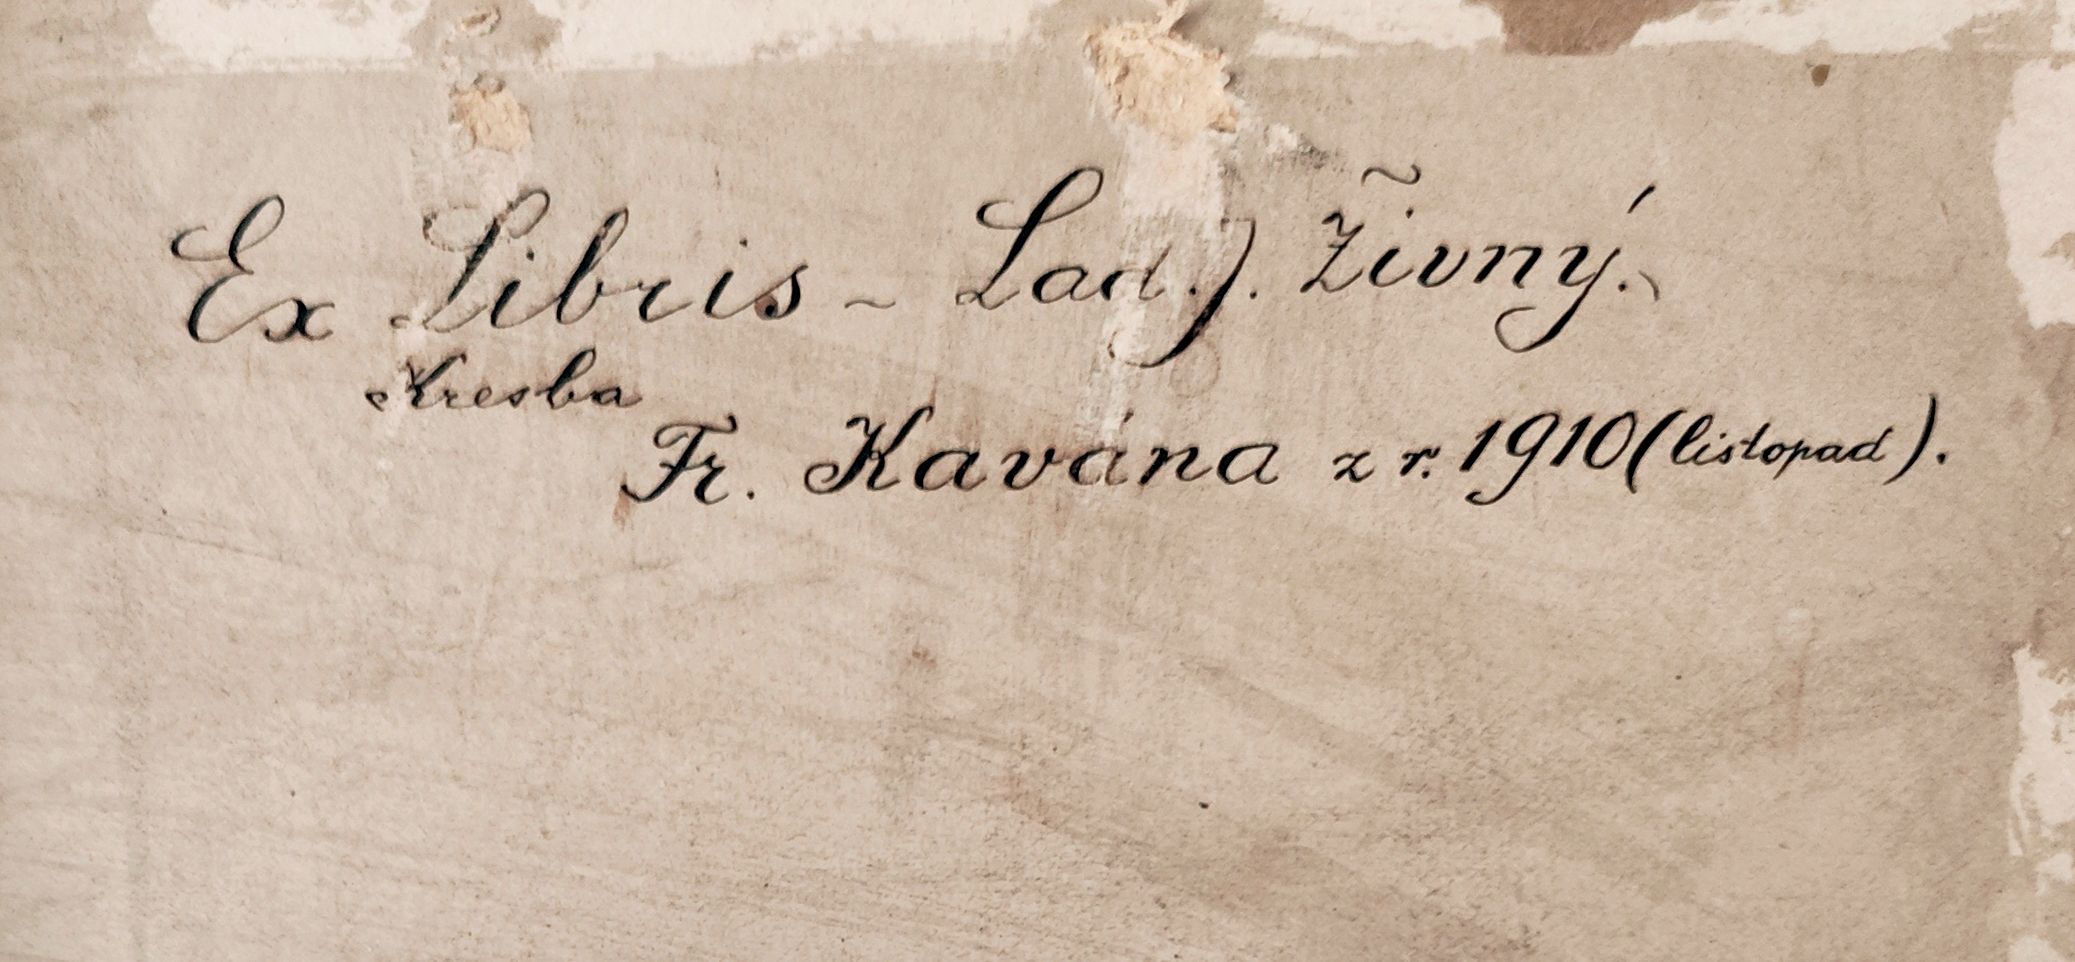 Ex Libris ~ Lad. J. Živný.
Kresba
Fr. Kavána z r. 1910 (listopad).